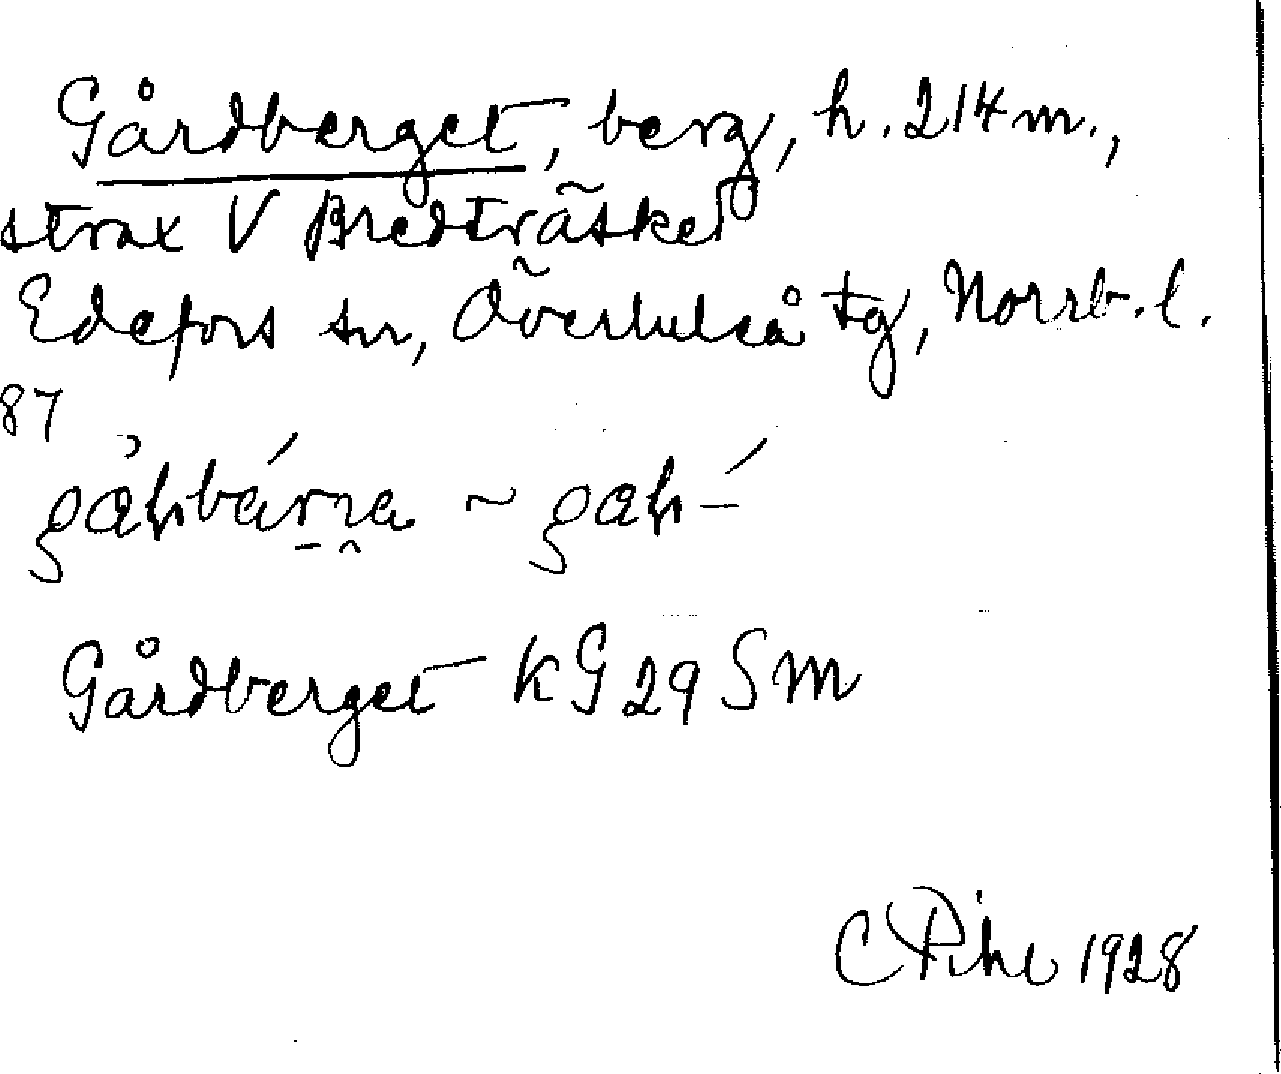 Gårdberget, berg, h. 214 m.,
strax V Bredträsket
Edefors sn, Överluleå tg, Norrb. l.
87
Gårdberget KG 29 SM
C Pihl 1928